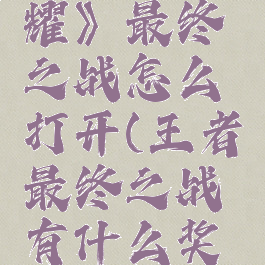 耀》最终
之战怎么
打开(王者
最终之战
有什么奖